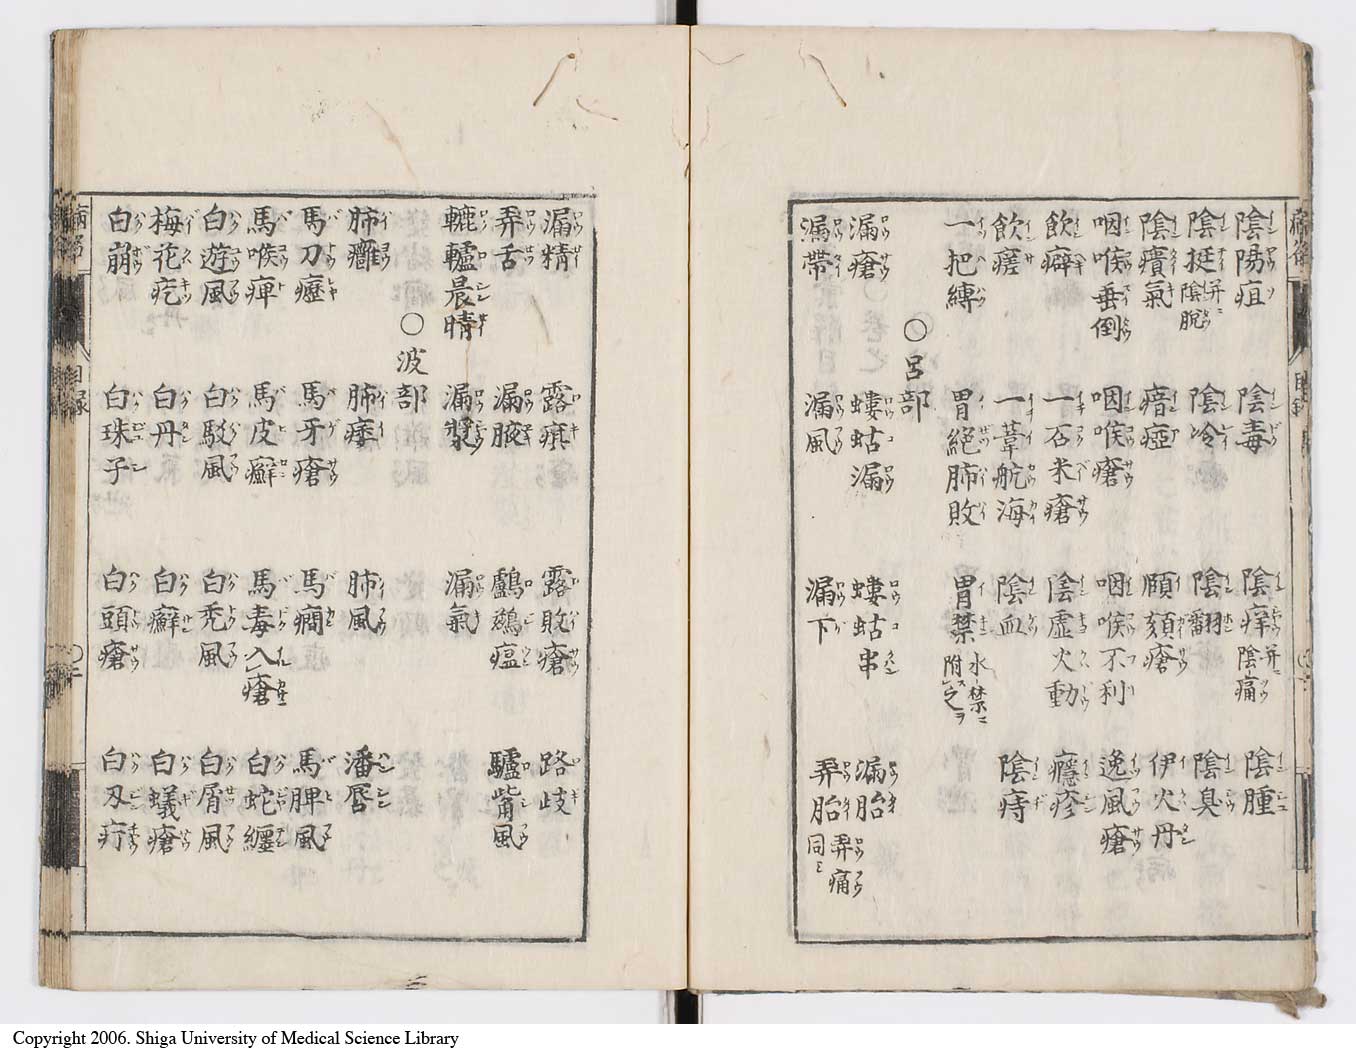 陰陽疽 陰毒 陰痒 并ニ陰痛 陰腫
陰挺 并ニ陰脫 陰冷 陰翻 陰臭
陰㿉氣 瘖瘂 頥頦瘡 伊火丹
咽喉垂倒 咽喉瘡 咽喉不利 逸風瘡
飲癖 一石米瘡 陰虛火動 癮疹
飲瘥 一葦航海 陰血 陰痔
一把縛 胃絕肺敗 胃禁 水禁ニ附之ヲ
○呂部
漏瘡 螻蛄漏 螻蛄串 漏胎
漏帶 漏風 漏下 弄胎 弄痛同ミ
漏精 露㾗 露敗瘡 路歧
弄舌 漏腋 鸕鷀瘟 驢觜風
轆轤晨睛 漏漿 漏氣
○波部
肺癰 肺痿 肺風 潘唇
馬刀癧 馬牙瘡 馬癇 馬脾風
馬喉痺 馬皮癬 馬毒入瘡 白蛇纏
白遊風 白駁風 白禿風 白屑風
梅花疙 白丹 白癬 白蟻瘡
白崩 白珠子 白頭瘡 白刃疔
目錄
Copyright 2006. Shiga University of Medical Science Library